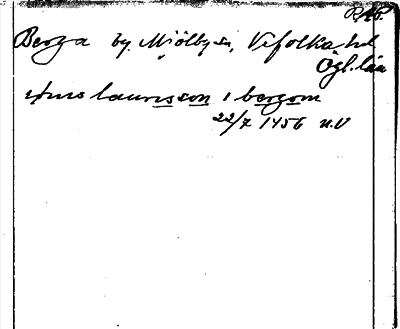 RAP.
Berga by, Mjölby sn, Vifolka hd
Ögl. län
laurisson i bergom
22/7 1456 n.V